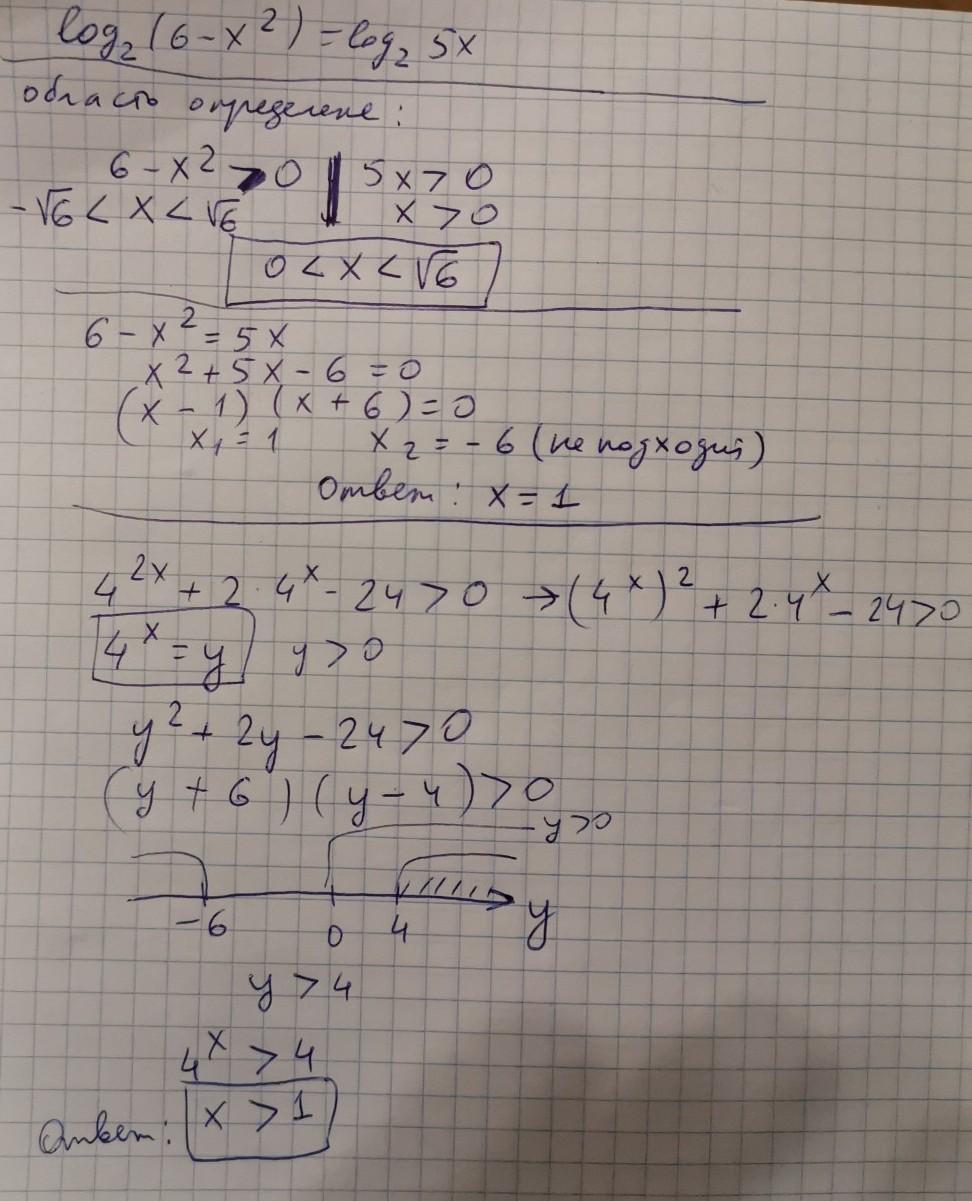 log₂(6-x²)=log₂ 5x
область определене:
6-x²>0 | 5x>0
-√6<x<√6 x>0
0<x<√6
6-x²=5x
x²+5x-6=0
(x-1)(x+6)=0
x₁=1 x₂=-6 (не подходит)
Ответ: x=1
4^(2x)+2·4^x-24>0 →(4^x)²+2·4^x-24>0
4^x=y y>0
y²+2y-24>0
(y+6)(y-4)>0
y>0
-6 0 4 y
y>4
4^x>4
Ответ: x>1